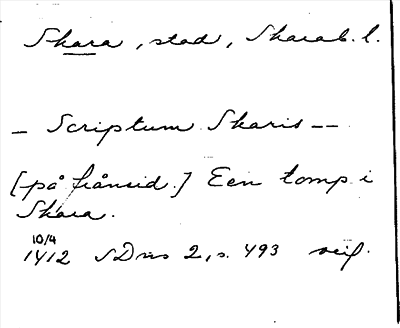 Skara, stad, Skarab. l.
– Scriptum Skaris --
[på frånsid.] Een tomp i
Skara.
10/4
1412 SDns 2, s. 493